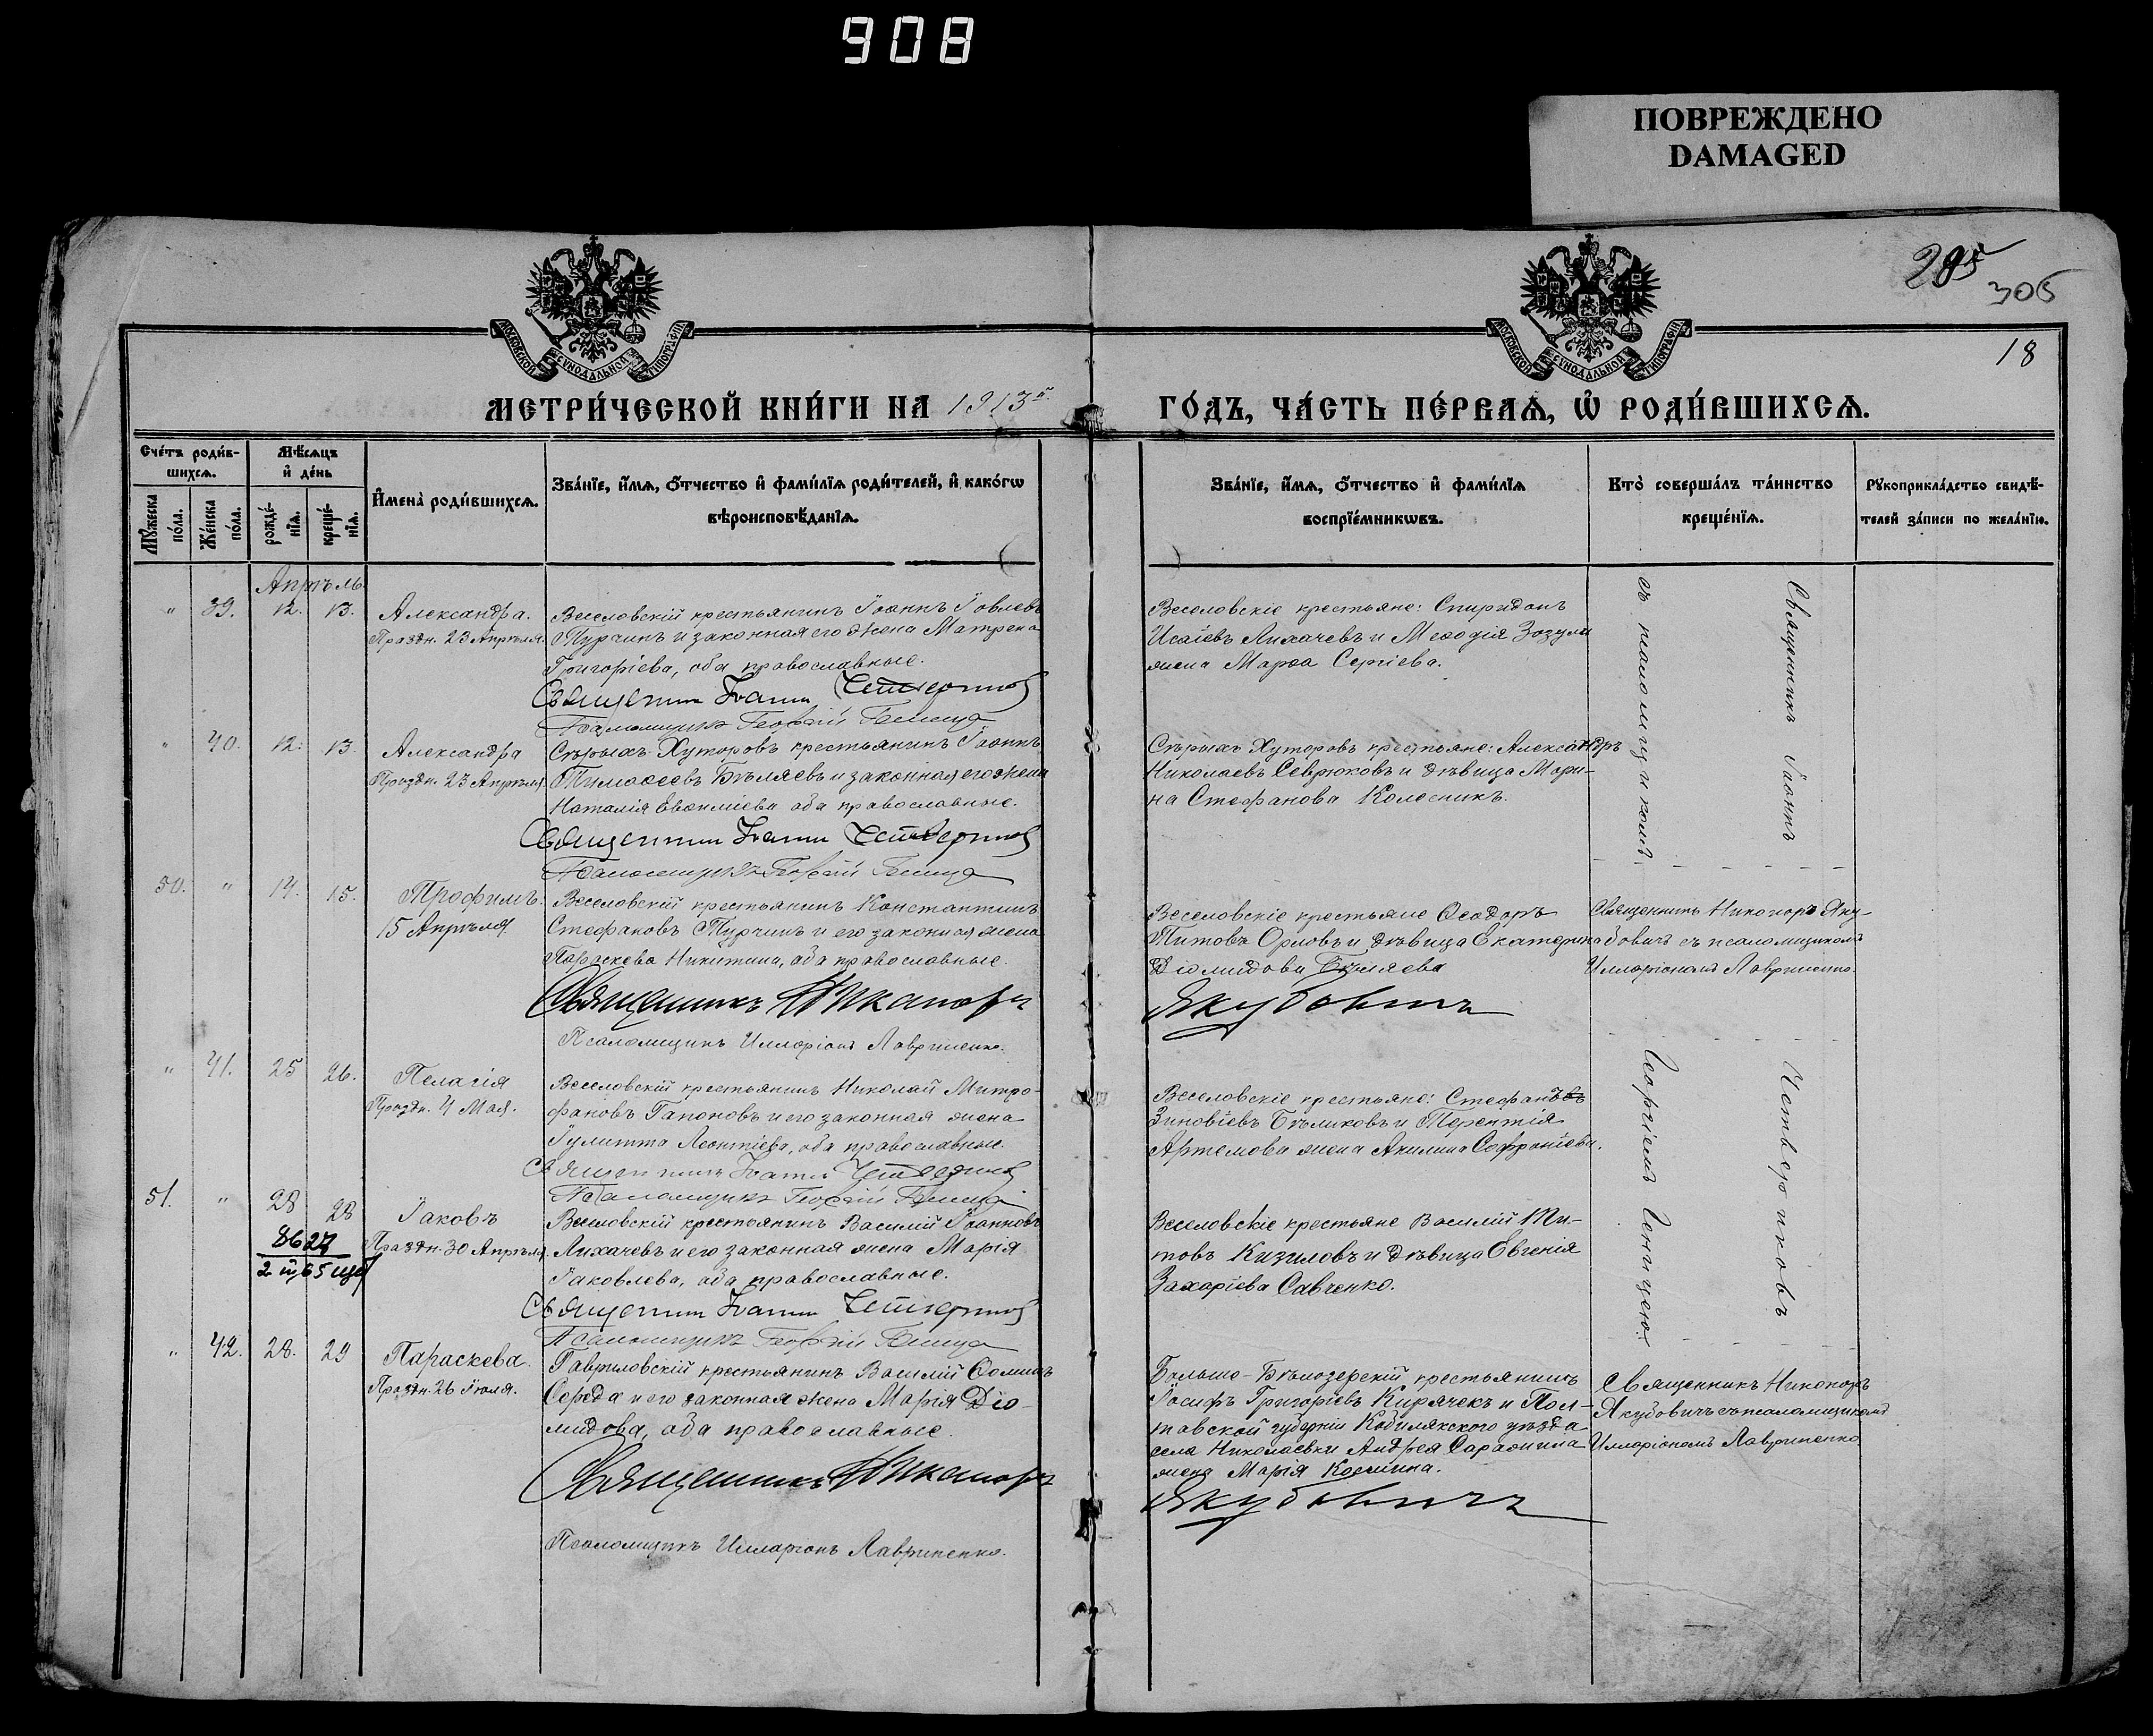 908
ПОВРЕЖДЕНО
DAMAGED
295
306
18
МОСКОВСКОЙ СѴНОДАЛЬНОЙ ТИПОГРАФІИ
МОСКОВСКОЙ СѴНОДАЛЬНОЙ ТИПОГРАФІИ
МЕТРИ́ЧЕСКОЙ КНИ́ГИ НА 1913й
ГО́ДЪ, ЧА́СТЬ ПЕ́РВАѦ, Ѽ РОДИ́ВШИХСѦ.
Сче́тъ роди́в-
шихсѧ.
Мѣ́сѧцъ
и҆ де́нь
Мꙋ́жеска
по́ла.
Же́нска
по́ла.
рожде́-
нїѧ.
креще́-
нїѧ.
И҆мена̀ роди́вшихсѧ.
Зва́нїе, и҆́мѧ, ѻ҆́тчество и҆ фами́лїѧ роди́телей, и҆ како́гѡ
вѣроисповѣ́данїѧ.
Зва́нїе, и҆́мѧ, ѻ҆́тчество и҆ фами́лїѧ
воспрїе́мникѡвъ.
Кто̀ соверша́лъ та́инство
креще́нїѧ.
Рꙋкоприкла́дство свидѣ́-
телей за́писи по жела́нїю.
Апрѣль
" 39. 12. 13. Александра.
Праздн. 23 Апрѣля.
Веселовскій крестьянинъ Іоаннъ Іовлевъ
Турчинъ и законная его жена Матрена
Григоріева, оба православные.
Священник Іоанн Четвериков
Псаломщикъ Георгій Геница
Веселовскіе крестьяне: Спиридонъ
Исаіевъ Лихачевъ и Меѳодія Зозули
жена Марѳа Сергіева.
" 40. 12. 13. Александра
Праздн. 23 Апрѣля.
Сѣрыхъ Хуторовъ крестьянинъ Іоаннъ
Тимоѳеевъ Бѣляевъ и законная его жена
Наталія Евѳиміева оба православные.
Священник Іоанн Четвериков
Псаломщикъ Георгій Геница
Сѣрыхъ Хуторовъ крестьяне: Александръ
Николаевъ Севрюковъ и дѣвица Мари-
на Стефанова Колесникъ.
Священникъ Іоаннъ
съ псаломщикомъ
50. " 14. 15. Трофимъ.
15 Апрѣля.
Веселовскій крестьянинъ Константинъ
Стефановъ Турчинъ и его законная жена
Параскева Никитина, оба православные.
Священникъ Никаноръ
Псаломщикъ Илларіонъ Лавриненко.
Веселовскіе крестьяне Ѳеодоръ
Титовъ Орловъ и дѣвица Екатерина
Діомидова Бѣляева
Якубовичъ
Священникъ Никаноръ Яку-
бовичъ съ псаломщикомъ
Илларіономъ Лавриненко.
" 41. 25 26. Пелагія
Праздн. 4 Мая.
Веселовскій крестьянинъ Николай Митро-
фановъ Гапоновъ и его законная жена
Іулитта Леонтіева, оба православные.
Священникъ Іоанн Четвериков
Псаломщикъ Георгій Геница
Веселовскіе крестьяне: Стефанъ
Зиновіевъ Бѣликовъ и Терентія
Артемова жена Акилина Софроніева.
51. " 28 28 Іаковъ
Праздн. 30 Апрѣля.
8627
Веселовскій крестьянинъ Василій Іоанновъ
Лихачевъ и его законная жена Марія
Іаковлева, оба православные.
Священник Іоанн Четвериков
Псаломщикъ Георгій Геница
Веселовскіе крестьяне Василій Ти-
товъ Кизиловъ и дѣвица Евгенія
Захаріева Савченко.
Четвериковъ
Георгіемъ Геницею.
" 42. 28. 29 Параскева.
Праздн. 26 Іюля.
Гавриловскій крестьянинъ Василій Ѳоминъ
Середа и его законная жена Марія Діо-
мидова, оба православные.
Священникъ Никаноръ
Псаломщикъ Илларіонъ Лавриненко.
Больше-Бѣлозерскій крестьянинъ
Іосифъ Григоріевъ Кирячекъ и Пол-
тавской губерніи Кобилякского уѣзда
села Николаевки Андрея Сарафина
жена Марія Космина.
Якубовичъ
Священникъ Никаноръ
Якубовичъ съ псаломщикомъ
Илларіономъ Лавриненко